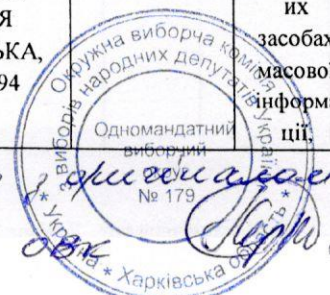 Я
ЬКА,
94
их
засобах
масової
інформа
ції,
Окружна виборча комісія
з виборів народних депутатів України
Одномандатний
виборчий
округ
№ 179
* Україна * Харківська область *
з оригіналом
ОВК